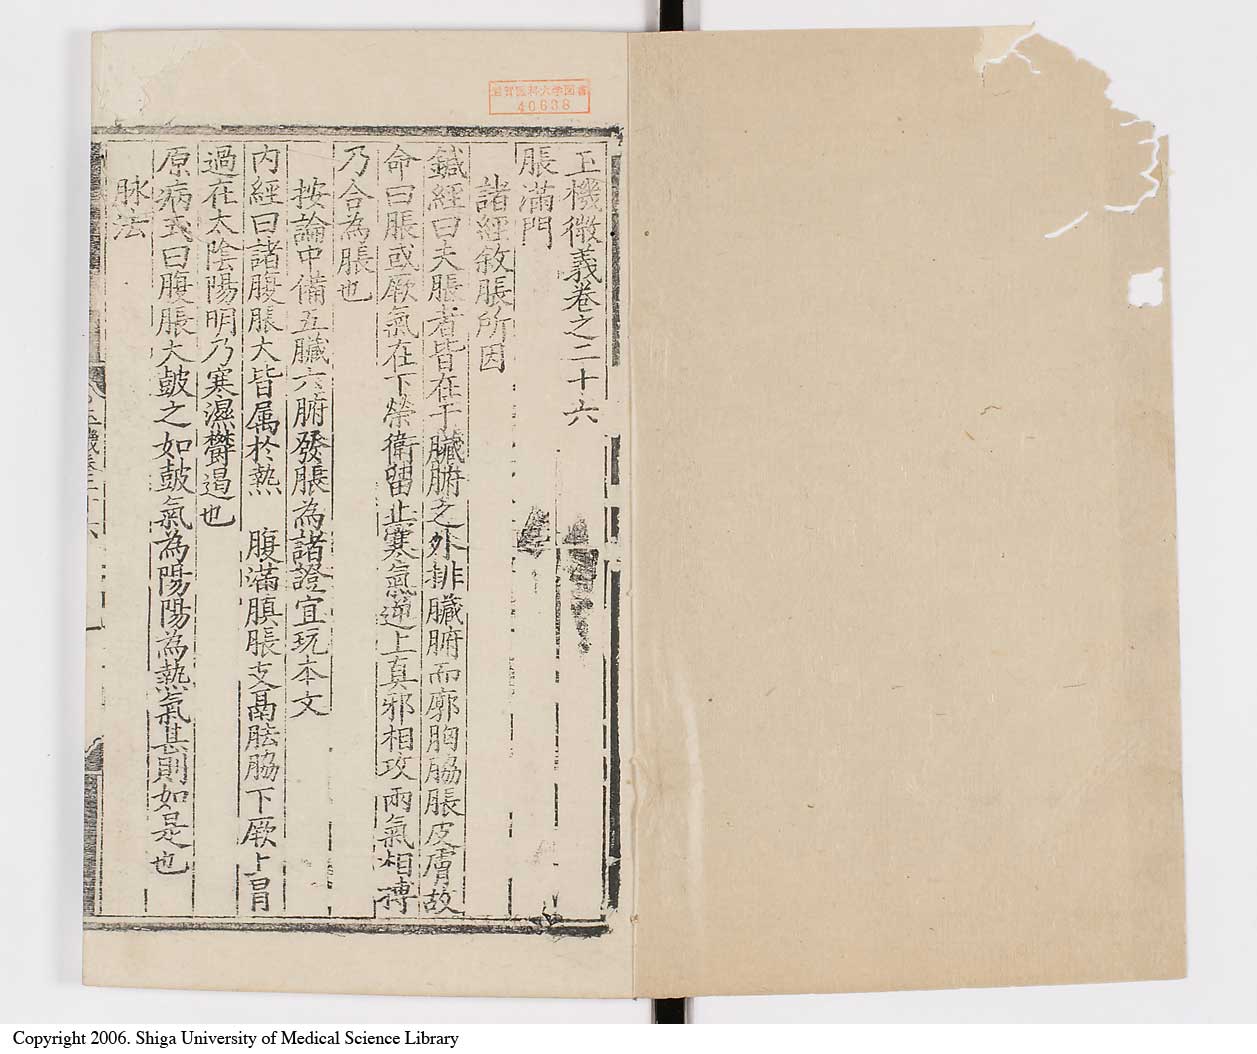 玉機微義卷之二十六
脹滿門
諸經敘脹所因
鍼經曰夫脹者皆在于臟腑之外排臟腑而廓胸脇脹皮膚故
命曰脹或厥氣在下榮衛留止寒氣逆上真邪相攻兩氣相搏
乃合為脹也
按論中備五臟六腑發脹為諸證宜玩本文
內經曰諸腹脹大皆属於熱　腹滿䐜脹支鬲胠脇下厥上冒
過在太陰陽明乃寒濕鬱遏也
原病式曰腹脹大皷之如皷氣為陽陽為熱氣甚則如是也
脉法
滋賀医科大学図書
40638
Copyright 2006. Shiga University of Medical Science Library